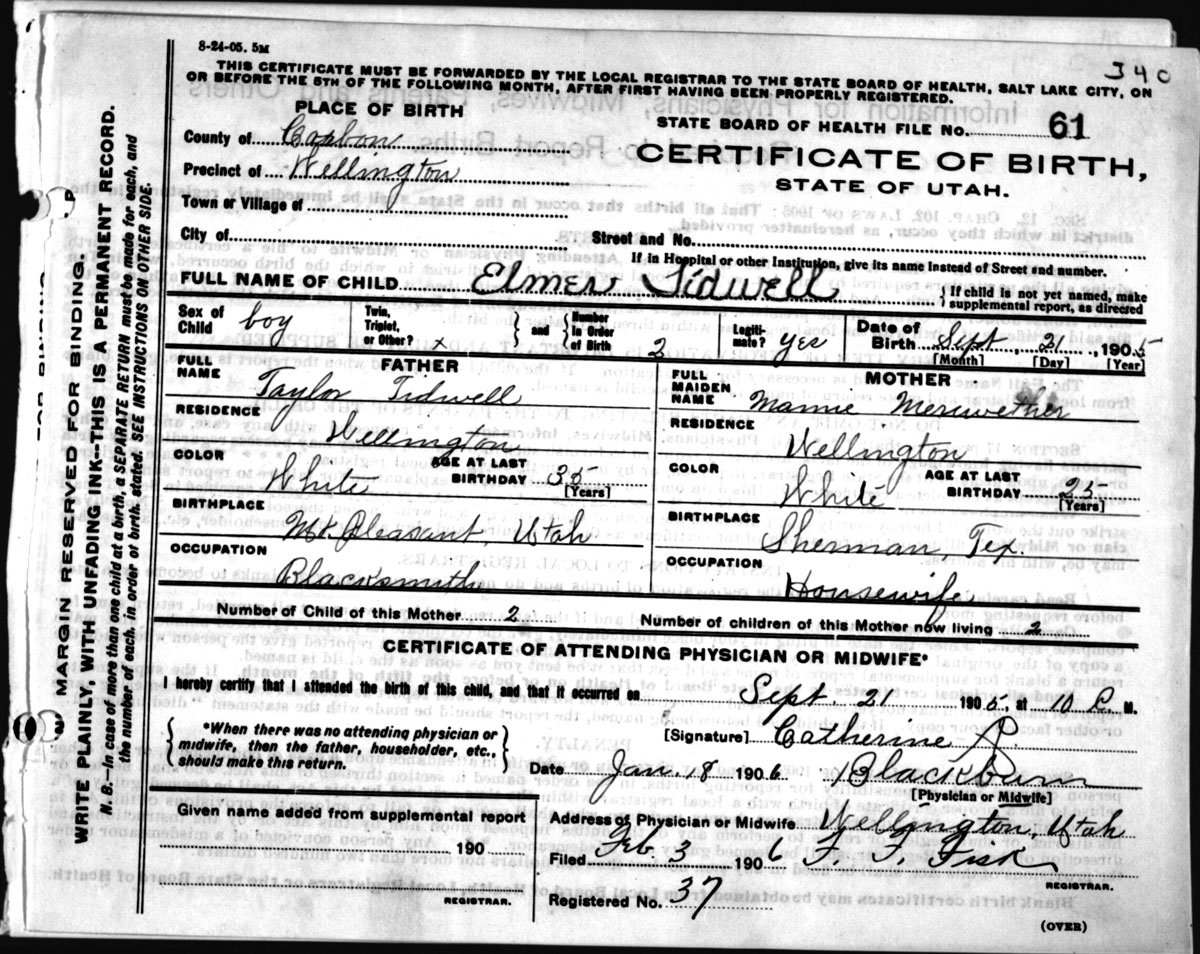 8-24-05. 5M
340
THIS CERTIFICATE MUST BE FORWARDED BY THE LOCAL REGISTRAR TO THE STATE BOARD OF HEALTH, SALT LAKE CITY, ON
OR BEFORE THE 5TH OF THE FOLLOWING MONTH, AFTER FIRST HAVING BEEN PROPERLY REGISTERED.
PLACE OF BIRTH
STATE BOARD OF HEALTH FILE NO. 61
County of Carbon
CERTIFICATE OF BIRTH,
Precinct of Wellington
STATE OF UTAH.
Town or Village of
City of
Street and No.
If in Hospital or other Institution, give its name instead of Street and number.
FULL NAME OF CHILD Elmer Tidwell { If child is not yet named, make
supplemental report, as directed
Sex of Child boy Twin, Triplet, or Other? x } and { Number in Order of Birth 2 Legitimate? yes Date of Birth Sept. 21, 1905
[Month] [Day] [Year]
FATHER
FULL NAME Taylor Tidwell
RESIDENCE
Wellington
COLOR White AGE AT LAST BIRTHDAY 35
[Years]
BIRTHPLACE
Mt. Pleasant, Utah
OCCUPATION
Blacksmith
MOTHER
FULL MAIDEN NAME Mamie Meriwether
RESIDENCE
Wellington
COLOR White AGE AT LAST BIRTHDAY 25
[Years]
BIRTHPLACE
Sherman, Tex.
OCCUPATION
Housewife
Number of Child of this Mother 2 Number of children of this Mother now living 2
CERTIFICATE OF ATTENDING PHYSICIAN OR MIDWIFE*
I hereby certify that I attended the birth of this child, and that it occurred on Sept. 21 1905, at 10 P. M.
{ *When there was no attending physician or
midwife, then the father, householder, etc.,
should make this return. }
[Signature] Catherine P.
Date Jan. 18 1906. Blackburn
[Physician or Midwife]
Given name added from supplemental report
190
REGISTRAR.
Address of Physician or Midwife Wellington, Utah
Filed Feb. 3 1906 F. F. Fisk
REGISTRAR.
Registered No. 37
(OVER)
MARGIN RESERVED FOR BINDING.
WRITE PLAINLY, WITH UNFADING INK—THIS IS A PERMANENT RECORD.
N. B.—In case of more than one child at a birth, a SEPARATE RETURN must be made for each, and
the number of each, in order of birth, stated. SEE INSTRUCTIONS ON OTHER SIDE.